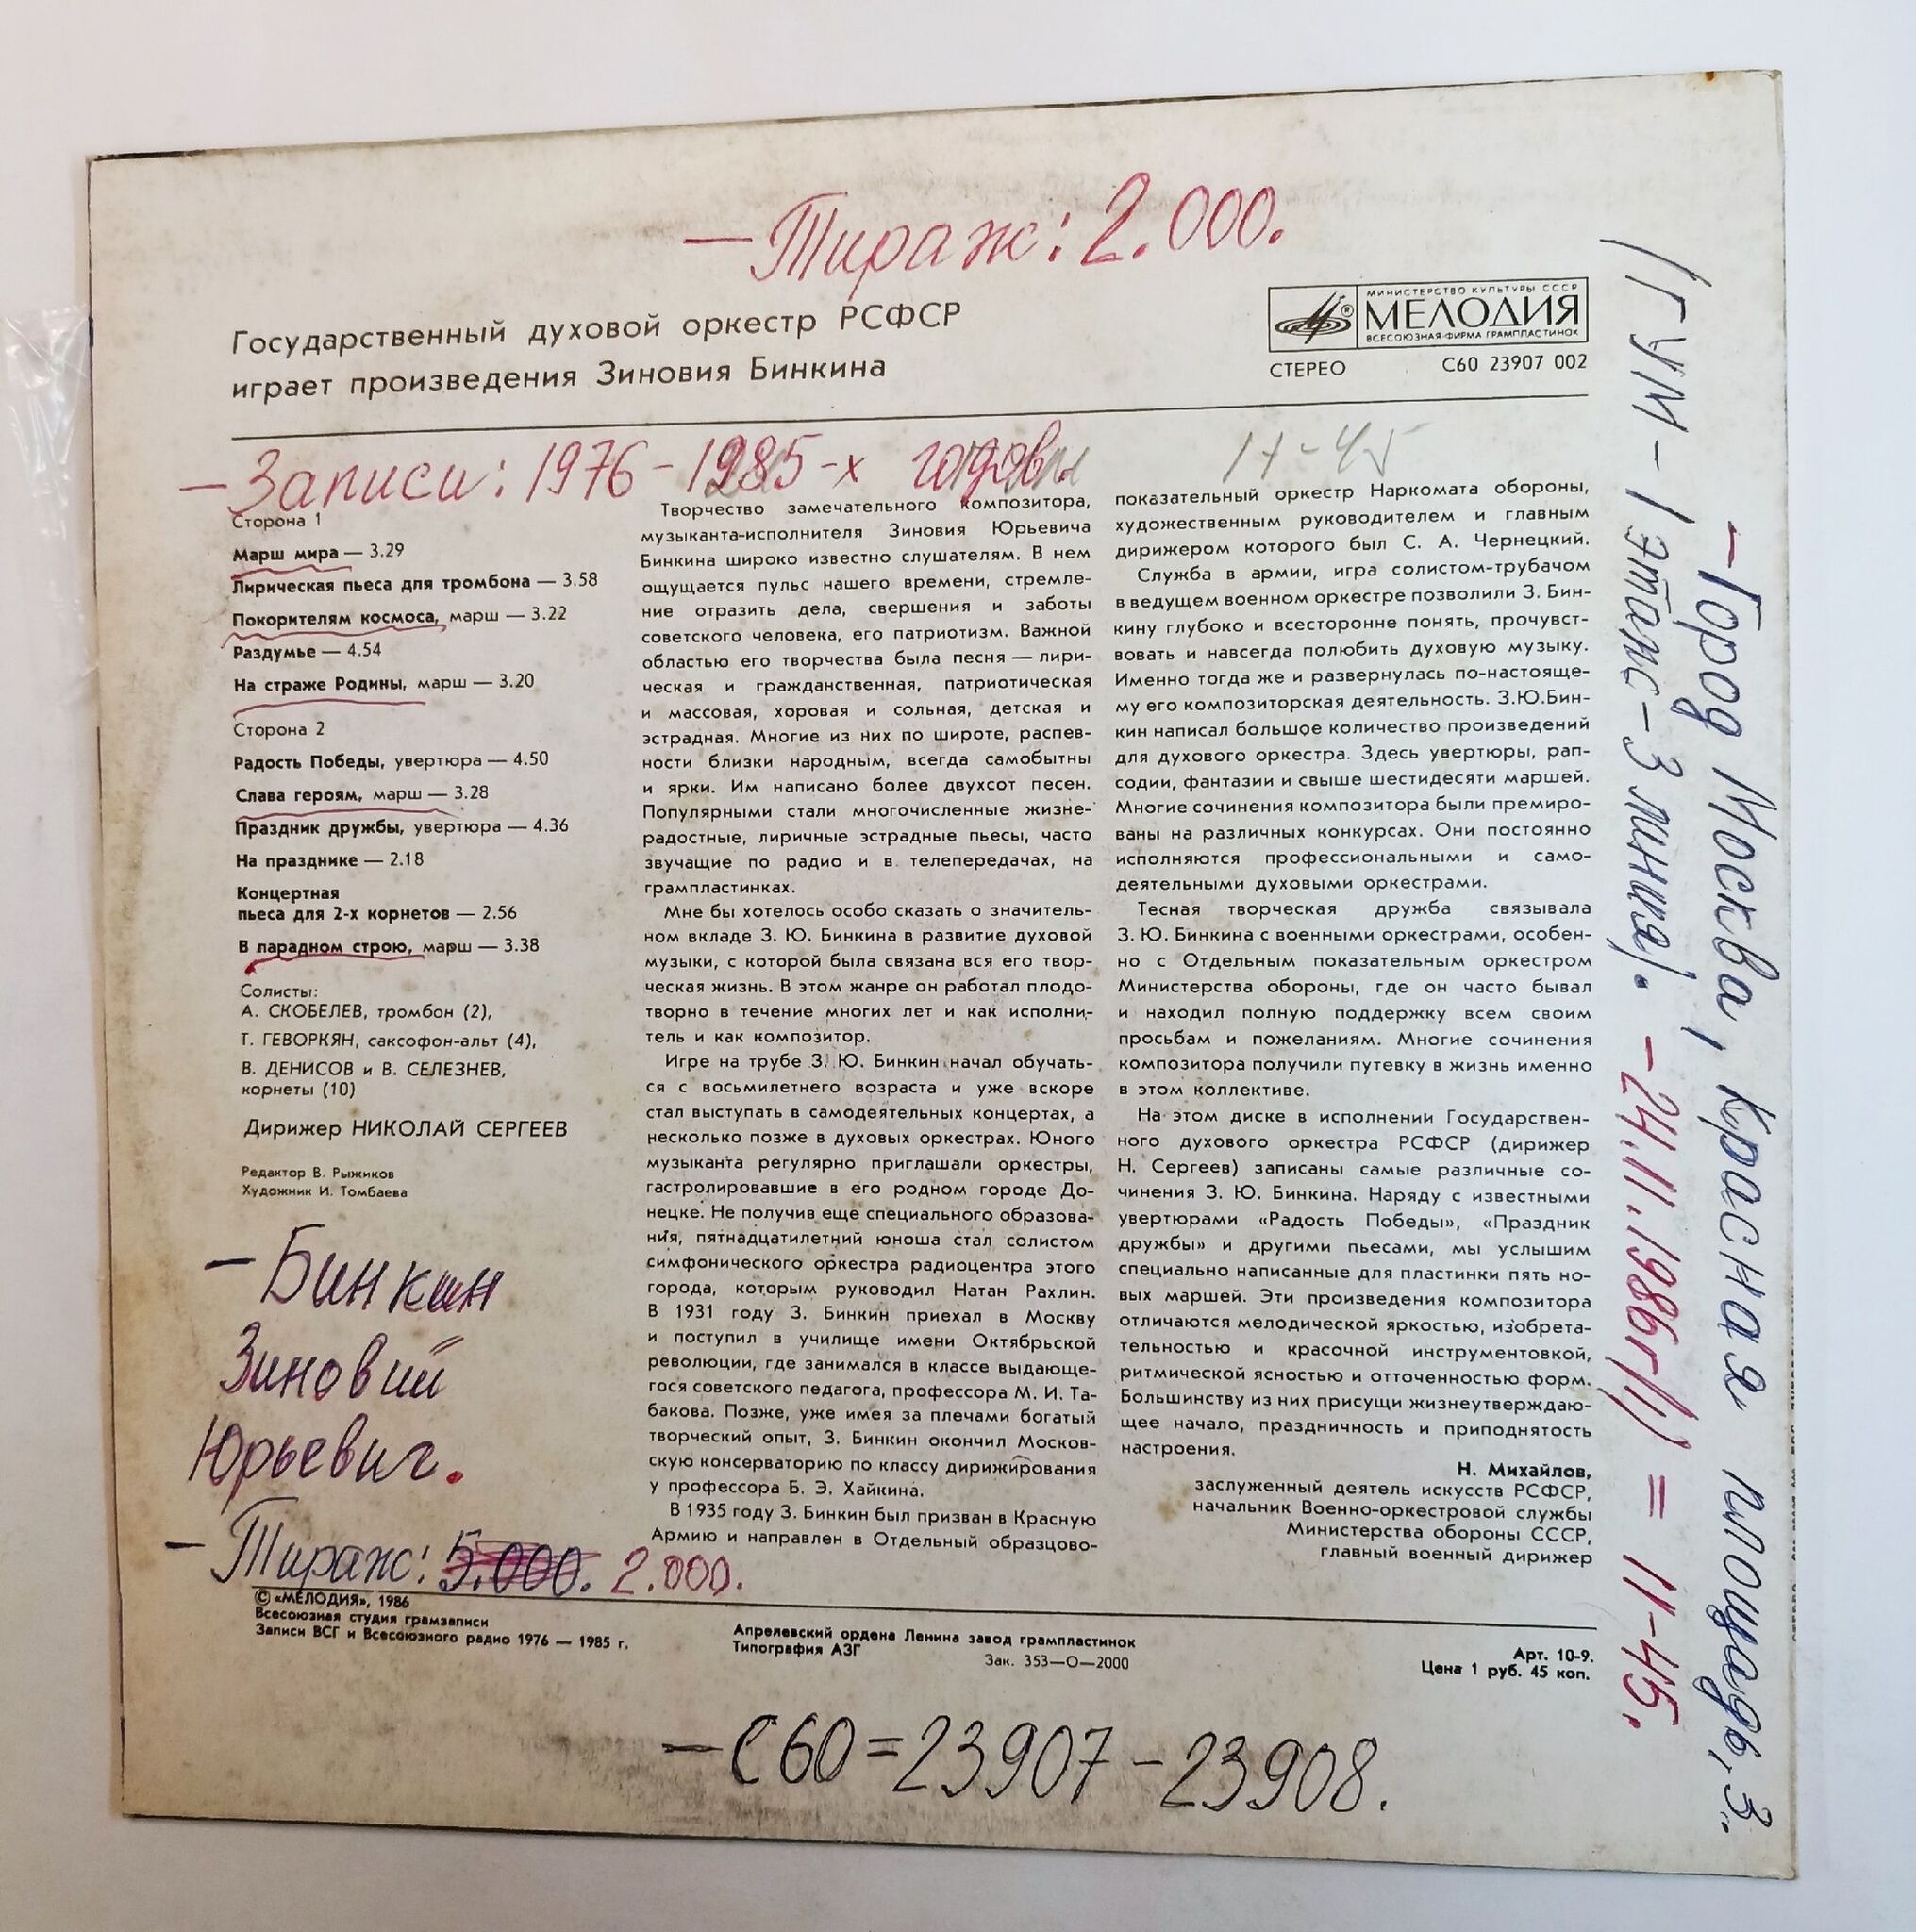 — Тираж: 2.000.
Государственный духовой оркестр РСФСР
играет произведения Зиновия Бинкина
МИНИСТЕРСТВО КУЛЬТУРЫ СССР
МЕЛОДИЯ
ВСЕСОЮЗНАЯ ФИРМА ГРАМПЛАСТИНОК
СТЕРЕО С60 23907 002
— Записи: 1976-1985-х годовы
11-45
Сторона 1
Марш мира — 3.29
Лирическая пьеса для тромбона — 3.58
Покорителям космоса, марш — 3.22
Раздумье — 4.54
На страже Родины, марш — 3.20
Сторона 2
Радость Победы, увертюра — 4.50
Слава героям, марш — 3.28
Праздник дружбы, увертюра — 4.36
На празднике — 2.18
Концертная
пьеса для 2-х корнетов — 2.56
В парадном строю, марш — 3.38
Солисты:
А. СКОБЕЛЕВ, тромбон (2),
Т. ГЕВОРКЯН, саксофон-альт (4),
В. ДЕНИСОВ и В. СЕЛЕЗНЕВ,
корнеты (10)
Дирижер НИКОЛАЙ СЕРГЕЕВ
Редактор В. Рыжиков
Художник И. Томбаева
— Бинкин
Зиновий
Юрьевич.
— Тираж: 5.000. 2.000.
Творчество замечательного композитора,
музыканта-исполнителя Зиновия Юрьевича
Бинкина широко известно слушателям. В нем
ощущается пульс нашего времени, стремле-
ние отразить дела, свершения и заботы
советского человека, его патриотизм. Важной
областью его творчества была песня — лири-
ческая и гражданственная, патриотическая
и массовая, хоровая и сольная, детская и
эстрадная. Многие из них по широте, распев-
ности близки народным, всегда самобытны
и ярки. Им написано более двухсот песен.
Популярными стали многочисленные жизне-
радостные, лиричные эстрадные пьесы, часто
звучащие по радио и в телепередачах, на
грампластинках.
Мне бы хотелось особо сказать о значитель-
ном вкладе З. Ю. Бинкина в развитие духовой
музыки, с которой была связана вся его твор-
ческая жизнь. В этом жанре он работал плодо-
творно в течение многих лет и как исполни-
тель и как композитор.
Игре на трубе З. Ю. Бинкин начал обучать-
ся с восьмилетнего возраста и уже вскоре
стал выступать в самодеятельных концертах, а
несколько позже в духовых оркестрах. Юного
музыканта регулярно приглашали оркестры,
гастролировавшие в его родном городе До-
нецке. Не получив еще специального образова-
ния, пятнадцатилетний юноша стал солистом
симфонического оркестра радиоцентра этого
города, которым руководил Натан Рахлин.
В 1931 году З. Бинкин приехал в Москву
и поступил в училище имени Октябрьской
революции, где занимался в классе выдающе-
гося советского педагога, профессора М. И. Та-
бакова. Позже, уже имея за плечами богатый
творческий опыт, З. Бинкин окончил Москов-
скую консерваторию по классу дирижирования
у профессора Б. Э. Хайкина.
В 1935 году З. Бинкин был призван в Красную
Армию и направлен в Отдельный образцово-
показательный оркестр Наркомата обороны,
художественным руководителем и главным
дирижером которого был С. А. Чернецкий.
Служба в армии, игра солистом-трубачом
в ведущем военном оркестре позволили З. Бин-
кину глубоко и всесторонне понять, прочувст-
вовать и навсегда полюбить духовую музыку.
Именно тогда же и развернулась по-настояще-
му его композиторская деятельность. З.Ю.Бин-
кин написал большое количество произведений
для духового оркестра. Здесь увертюры, рап-
содии, фантазии и свыше шестидесяти маршей.
Многие сочинения композитора были премиро-
ваны на различных конкурсах. Они постоянно
исполняются профессиональными и само-
деятельными духовыми оркестрами.
Тесная творческая дружба связывала
З. Ю. Бинкина с военными оркестрами, особен-
но с Отдельным показательным оркестром
Министерства обороны, где он часто бывал
и находил полную поддержку всем своим
просьбам и пожеланиям. Многие сочинения
композитора получили путевку в жизнь именно
в этом коллективе.
На этом диске в исполнении Государствен-
ного духового оркестра РСФСР (дирижер
Н. Сергеев) записаны самые различные со-
чинения З. Ю. Бинкина. Наряду с известными
увертюрами «Радость Победы», «Праздник
дружбы» и другими пьесами, мы услышим
специально написанные для пластинки пять но-
вых маршей. Эти произведения композитора
отличаются мелодической яркостью, изобрета-
тельностью и красочной инструментовкой,
ритмической ясностью и отточенностью форм.
Большинству из них присущи жизнеутверждаю-
щее начало, праздничность и приподнятость
настроения.
Н. Михайлов,
заслуженный деятель искусств РСФСР,
начальник Военно-оркестровой службы
Министерства обороны СССР,
главный военный дирижер
© «МЕЛОДИЯ», 1986
Всесоюзная студия грамзаписи
Записи ВСГ и Всесоюзного радио 1976 — 1985 г.
Апрелевский ордена Ленина завод грампластинок
Типография АЗГ
Зак. 353—О—2000
Арт. 10-9.
Цена 1 руб. 45 коп.
— С60=23907-23908.
— Город Москва, Красная площадь, 3.
(ГУМ - 1 этаж - 3 линия). — 24.11.1986г(11) = 11-45.